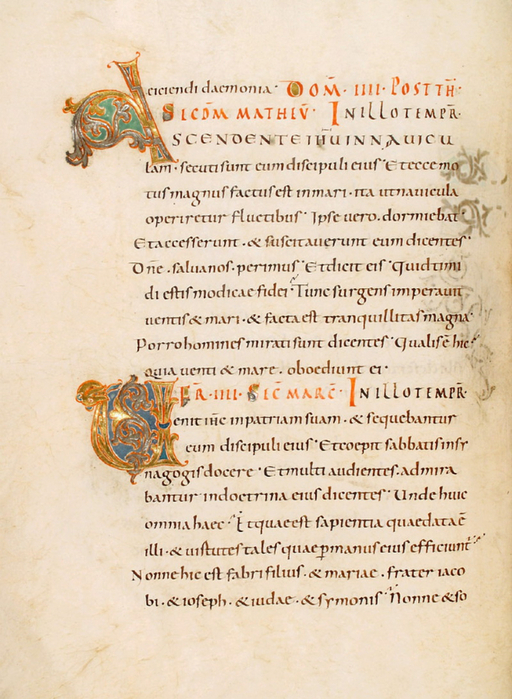 eiciendi daemonia · DOM̄ · IIII · POST TH̄ ·
SIC̄DM̄ MATHĒV̄ · IN ILLO TEMPR̄ ·
ASCENDENTE IHŪ IN NAUICU
lam · secuti sunt eum discipuli eius · Et ecce mo
tus magnus factus est in mari · ita ut nauicula
operiretur fluctibus · Ipse uero · dormiebat ·
Et accesserunt · & suscitauerunt eum dicentes ·
Dn̄e · salua nos · perimus · Et dicit eis · Quid timi
di estis modicae fidei · Tunc surgens imperauit
uentis & mari · & facta est tranquillitas magna ·
Porro homines mirati sunt dicentes · Qualis ē hic ·
quia uenti & mare · oboediunt ei ·
FR̄ · IIII · SEC̄ MARC̄ · IN ILLO TEMPR ·
Uenit ihc̄ in patriam suam · & sequebantur
eum discipuli eius · Et coepit sabbatis in sy
nagogis docere · Et multi audientes · admira
bantur in doctrina eius dicentes · Unde huic
omnia haec · Et quae est sapientia quae data ē
illi · & uirtutes tales quae ꝑ manus eius efficiunt̄
Nonne hic est fabri filius · & mariae · frater iaco
bi · & ioseph · & iudae · & symonis · Nonne & so